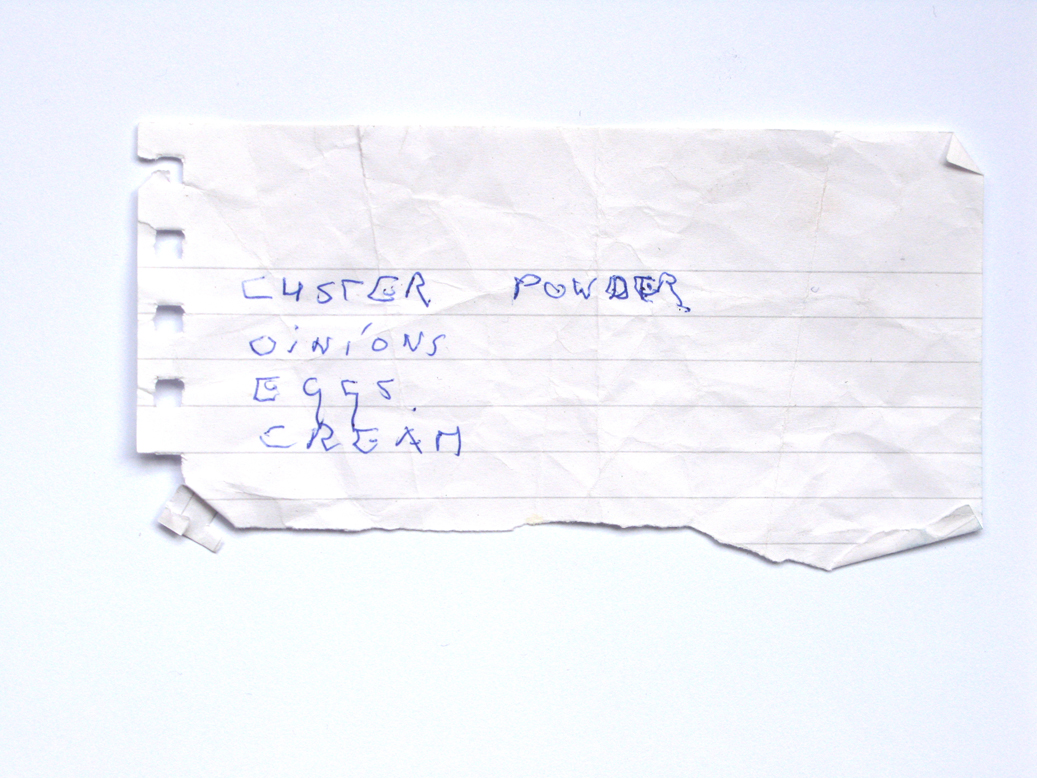 CUSTER POWDER
OiNiONS
EggS.
CREAM